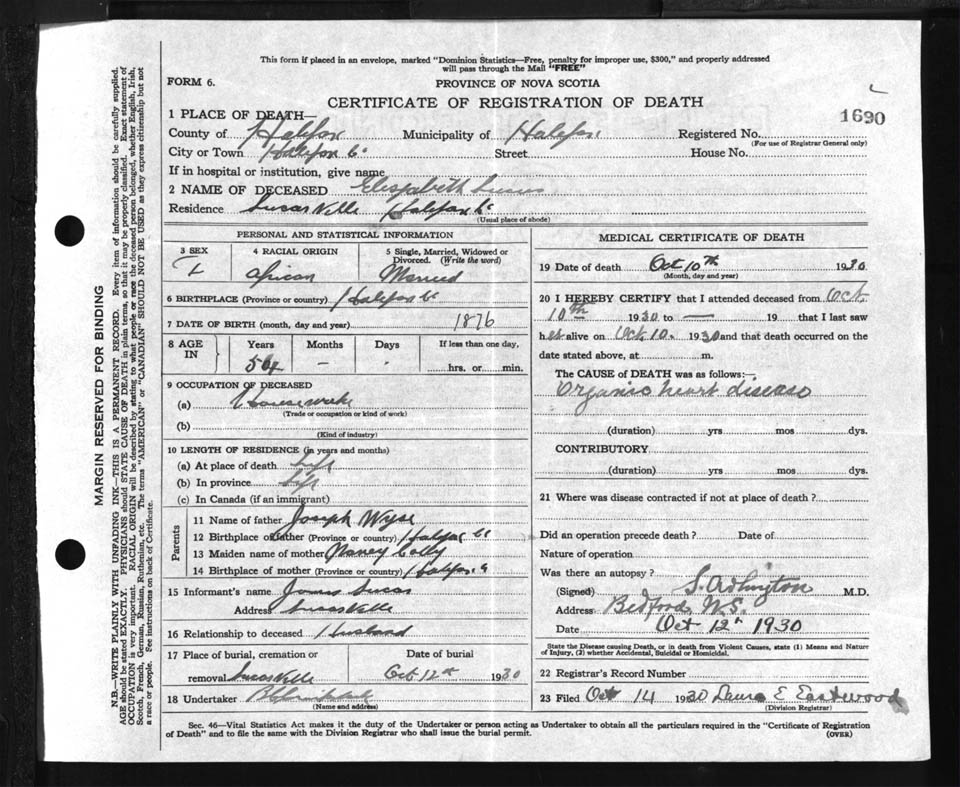 This form if placed in an envelope, marked "Dominion Statistics—Free, penalty for improper use, $300," and properly addressed
will pass through the Mail "FREE"
FORM 6.
PROVINCE OF NOVA SCOTIA
CERTIFICATE OF REGISTRATION OF DEATH
1690
1 PLACE OF DEATH—
County of Halifax Municipality of Halifax Registered No.
(For use of Registrar General only)
City or Town Halifax Co Street House No.
If in hospital or institution, give name
2 NAME OF DECEASED Elizabeth Lucas
Residence Lucasville Halifax Co
(Usual place of abode)
PERSONAL AND STATISTICAL INFORMATION
3 SEX 4 RACIAL ORIGIN 5 Single, Married, Widowed or
Divorced. (Write the word)
F African Married
6 BIRTHPLACE (Province or country) Halifax Co
7 DATE OF BIRTH (month, day and year) 1876
8 AGE IN Years Months Days If less than one day,
54 - - hrs. or min.
9 OCCUPATION OF DECEASED
(a) Housework
(Trade or occupation or kind of work)
(b)
(Kind of industry)
10 LENGTH OF RESIDENCE (in years and months)
(a) At place of death Life
(b) In province Life
(c) In Canada (if an immigrant)
Parents
11 Name of father Joseph Wyse
12 Birthplace of father (Province or country) Halifax Co
13 Maiden name of mother Nancy
14 Birthplace of mother (Province or country) Halifax Co
15 Informant's name James Lucas
Address Lucasville
16 Relationship to deceased Husband
17 Place of burial, cremation or Date of burial
removal Lucasville Oct 12th 1930
18 Undertaker
(Name and address)
MEDICAL CERTIFICATE OF DEATH
19 Date of death Oct 10th 1930
(Month, day and year)
20 I HEREBY CERTIFY that I attended deceased from Oct.
10th 1930 to — 19 that I last saw
her alive on Oct 10. 1930 and that death occurred on the
date stated above, at m.
The CAUSE of DEATH was as follows:—
Organic heart disease
(duration) yrs mos dys.
CONTRIBUTORY.
(duration) yrs mos dys.
21 Where was disease contracted if not at place of death?
Did an operation precede death? Date of
Nature of operation
Was there an autopsy?
(Signed) S. Arlington M.D.
Address Bedford, N.S.
Date Oct 12th 1930
State the Disease causing Death, or in death from Violent Causes, state (1) Means and Nature
of Injury, (2) whether Accidental, Suicidal or Homicidal.
22 Registrar's Record Number
23 Filed Oct 14 1930 Laura E. Eastwood
(Division Registrar)
Sec. 46—Vital Statistics Act makes it the duty of the Undertaker or person acting as Undertaker to obtain all the particulars required in the "Certificate of Registration
of Death" and to file the same with the Division Registrar who shall issue the burial permit.
(OVER)
MARGIN RESERVED FOR BINDING
N.B.—WRITE PLAINLY WITH UNFADING INK—THIS IS A PERMANENT RECORD. Every item of information should be carefully supplied.
AGE should be stated EXACTLY. PHYSICIANS should STATE CAUSE OF DEATH in plain terms, so that it may be properly classified. Exact statement of
OCCUPATION is very important. RACIAL ORIGIN will be described by stating to what people or race the deceased person belonged, whether English, Irish,
Scotch, French, German, Russian, Ruthenian, etc. The terms "AMERICAN" or "CANADIAN" SHOULD NOT BE USED as they express citizenship but not
a race or people. See instructions on back of Certificate.